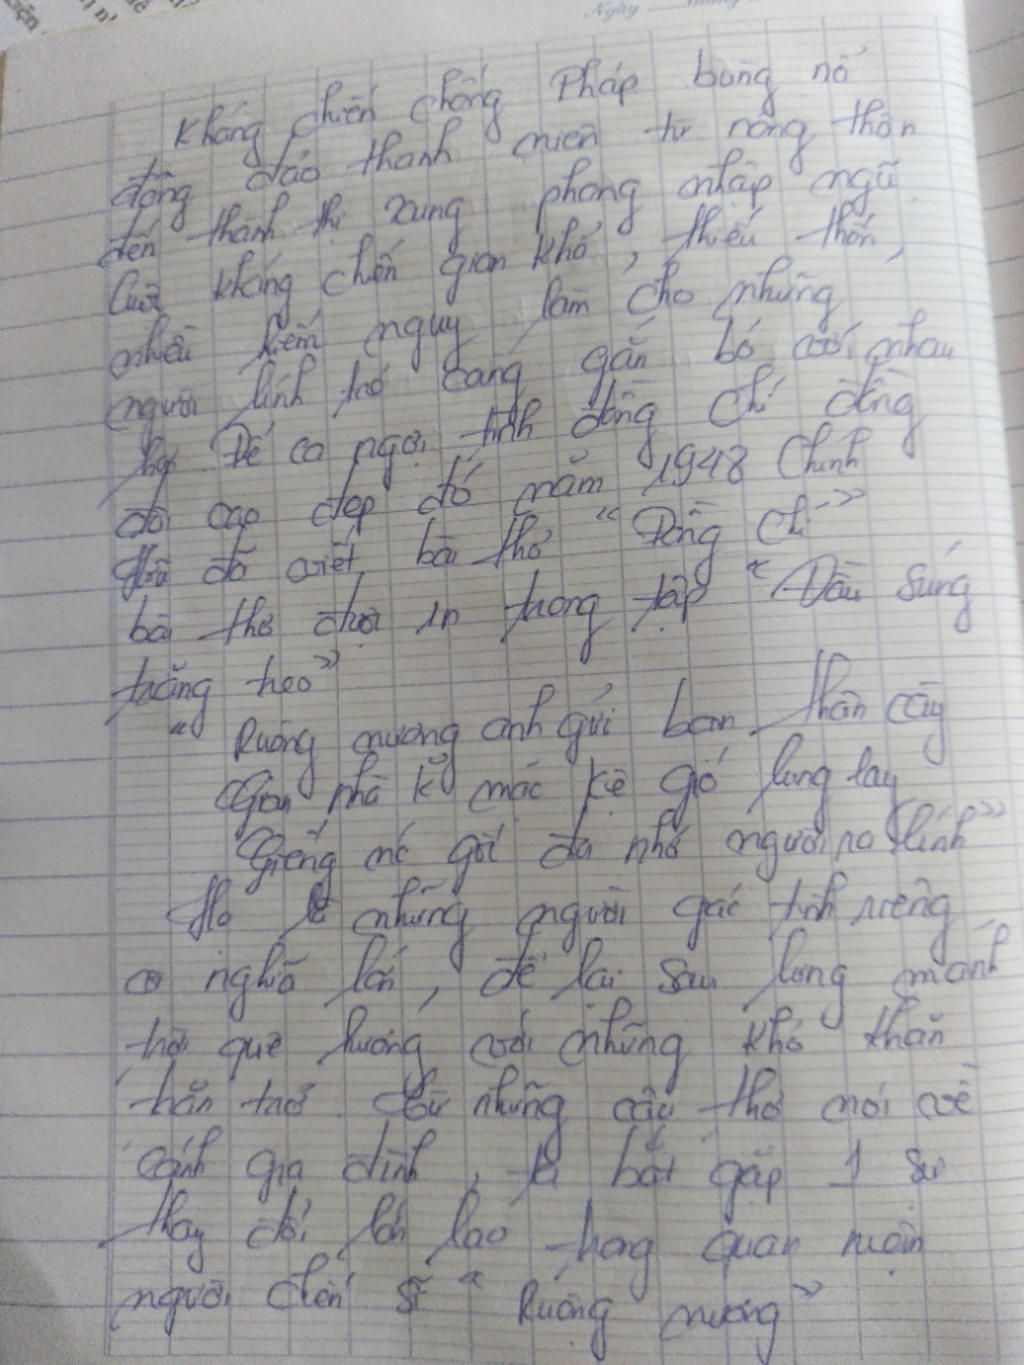 Ngày
Kháng chiến chống Pháp bùng nổ
đông đảo thanh niên từ nông thôn
đến thành thị xung phong nhập ngũ.
Cuộc kháng chiến gian khổ, thiếu thốn,
nhiều hiểm nguy làm cho những
người lính trở càng gắn bó với nhau
hơn. Để ca ngợi tình đồng chí đồng
đội cao đẹp đó năm 1948 Chính
Hữu đã viết bài thơ "Đồng chí"
bài thơ được in trong tập "Đầu súng
trăng treo"
"Ruộng nương anh gửi bạn thân cày
Gian nhà k mặc kệ gió lung lay
Giếng nc gốc đa nhớ người ra lính"
Họ là những người gác tình riêng
vì nghĩa lớn, để lại sau lưng mảnh
trời quê hương với những khó khăn
trăn trở. Từ những câu thơ nói về
cảnh gia đình, ta bắt gặp 1 sự
thay đổi lớn lao trong quan niệm
người chiến sĩ "Ruộng nương"